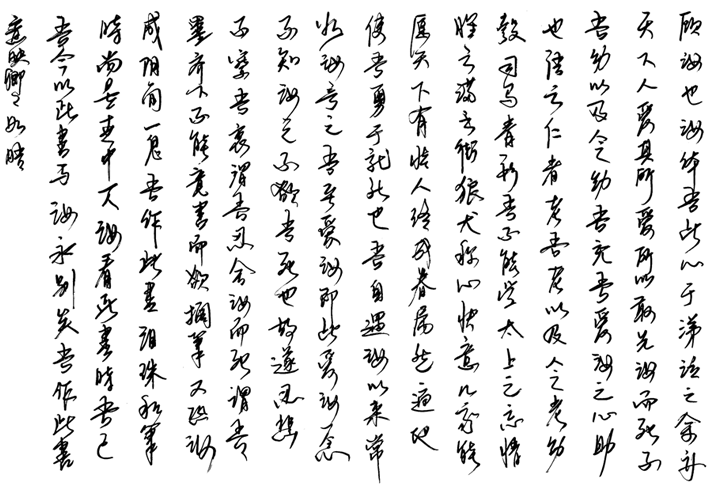 意映卿卿如晤
吾今以此書與汝永別矣吾作此書
時尚是世中一人汝看此書時吾已
成陰間一鬼吾作此書淚珠和筆
墨齊下不能竟書而欲擱筆又恐汝
不察吾衷謂吾忍舍汝而死謂吾
不知汝之不欲吾死也故遂忍悲
為汝言之吾至愛汝即此愛汝一念
使吾勇于就死也吾自遇汝以來常
願天下有情人終成眷屬然遍地
腥云滿街狼犬稱心快意几家能
彀司馬青衫吾不能學太上之忘情
也語云仁者老吾老以及人之老幼
吾幼以及人之幼吾充吾愛汝之心助
天下人愛其所愛所以敢先汝而死不
顧汝也汝體吾此心于涕泣之余亦